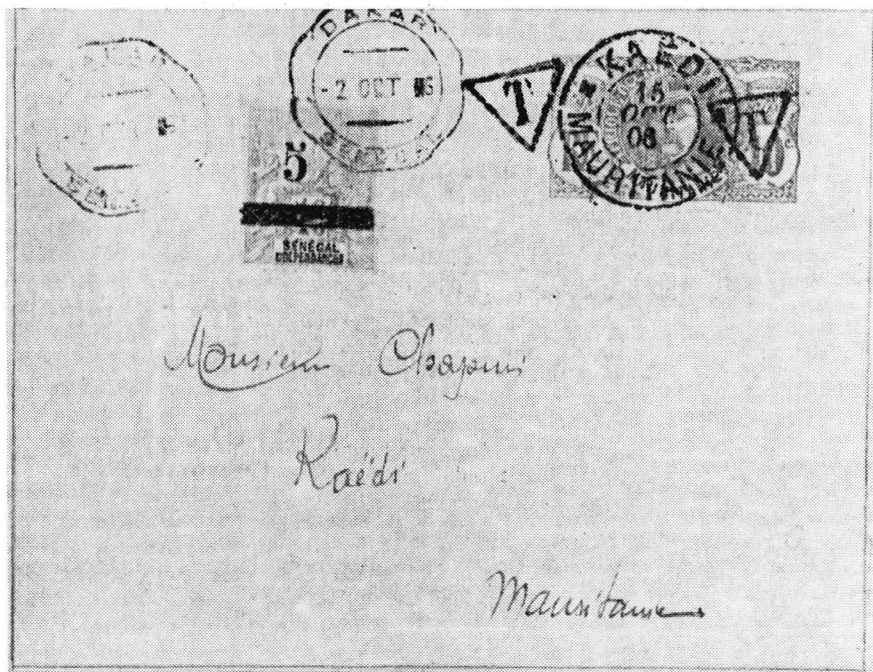 DAKAR
-2 OCT 06
SENEGAL
T
KAÉDI
15
OCT
06
MAURITANIE
T
5
SÉNÉGAL
ET DÉPENDANCES
Monsieur Chapuis
Kaédi
Mauritanie